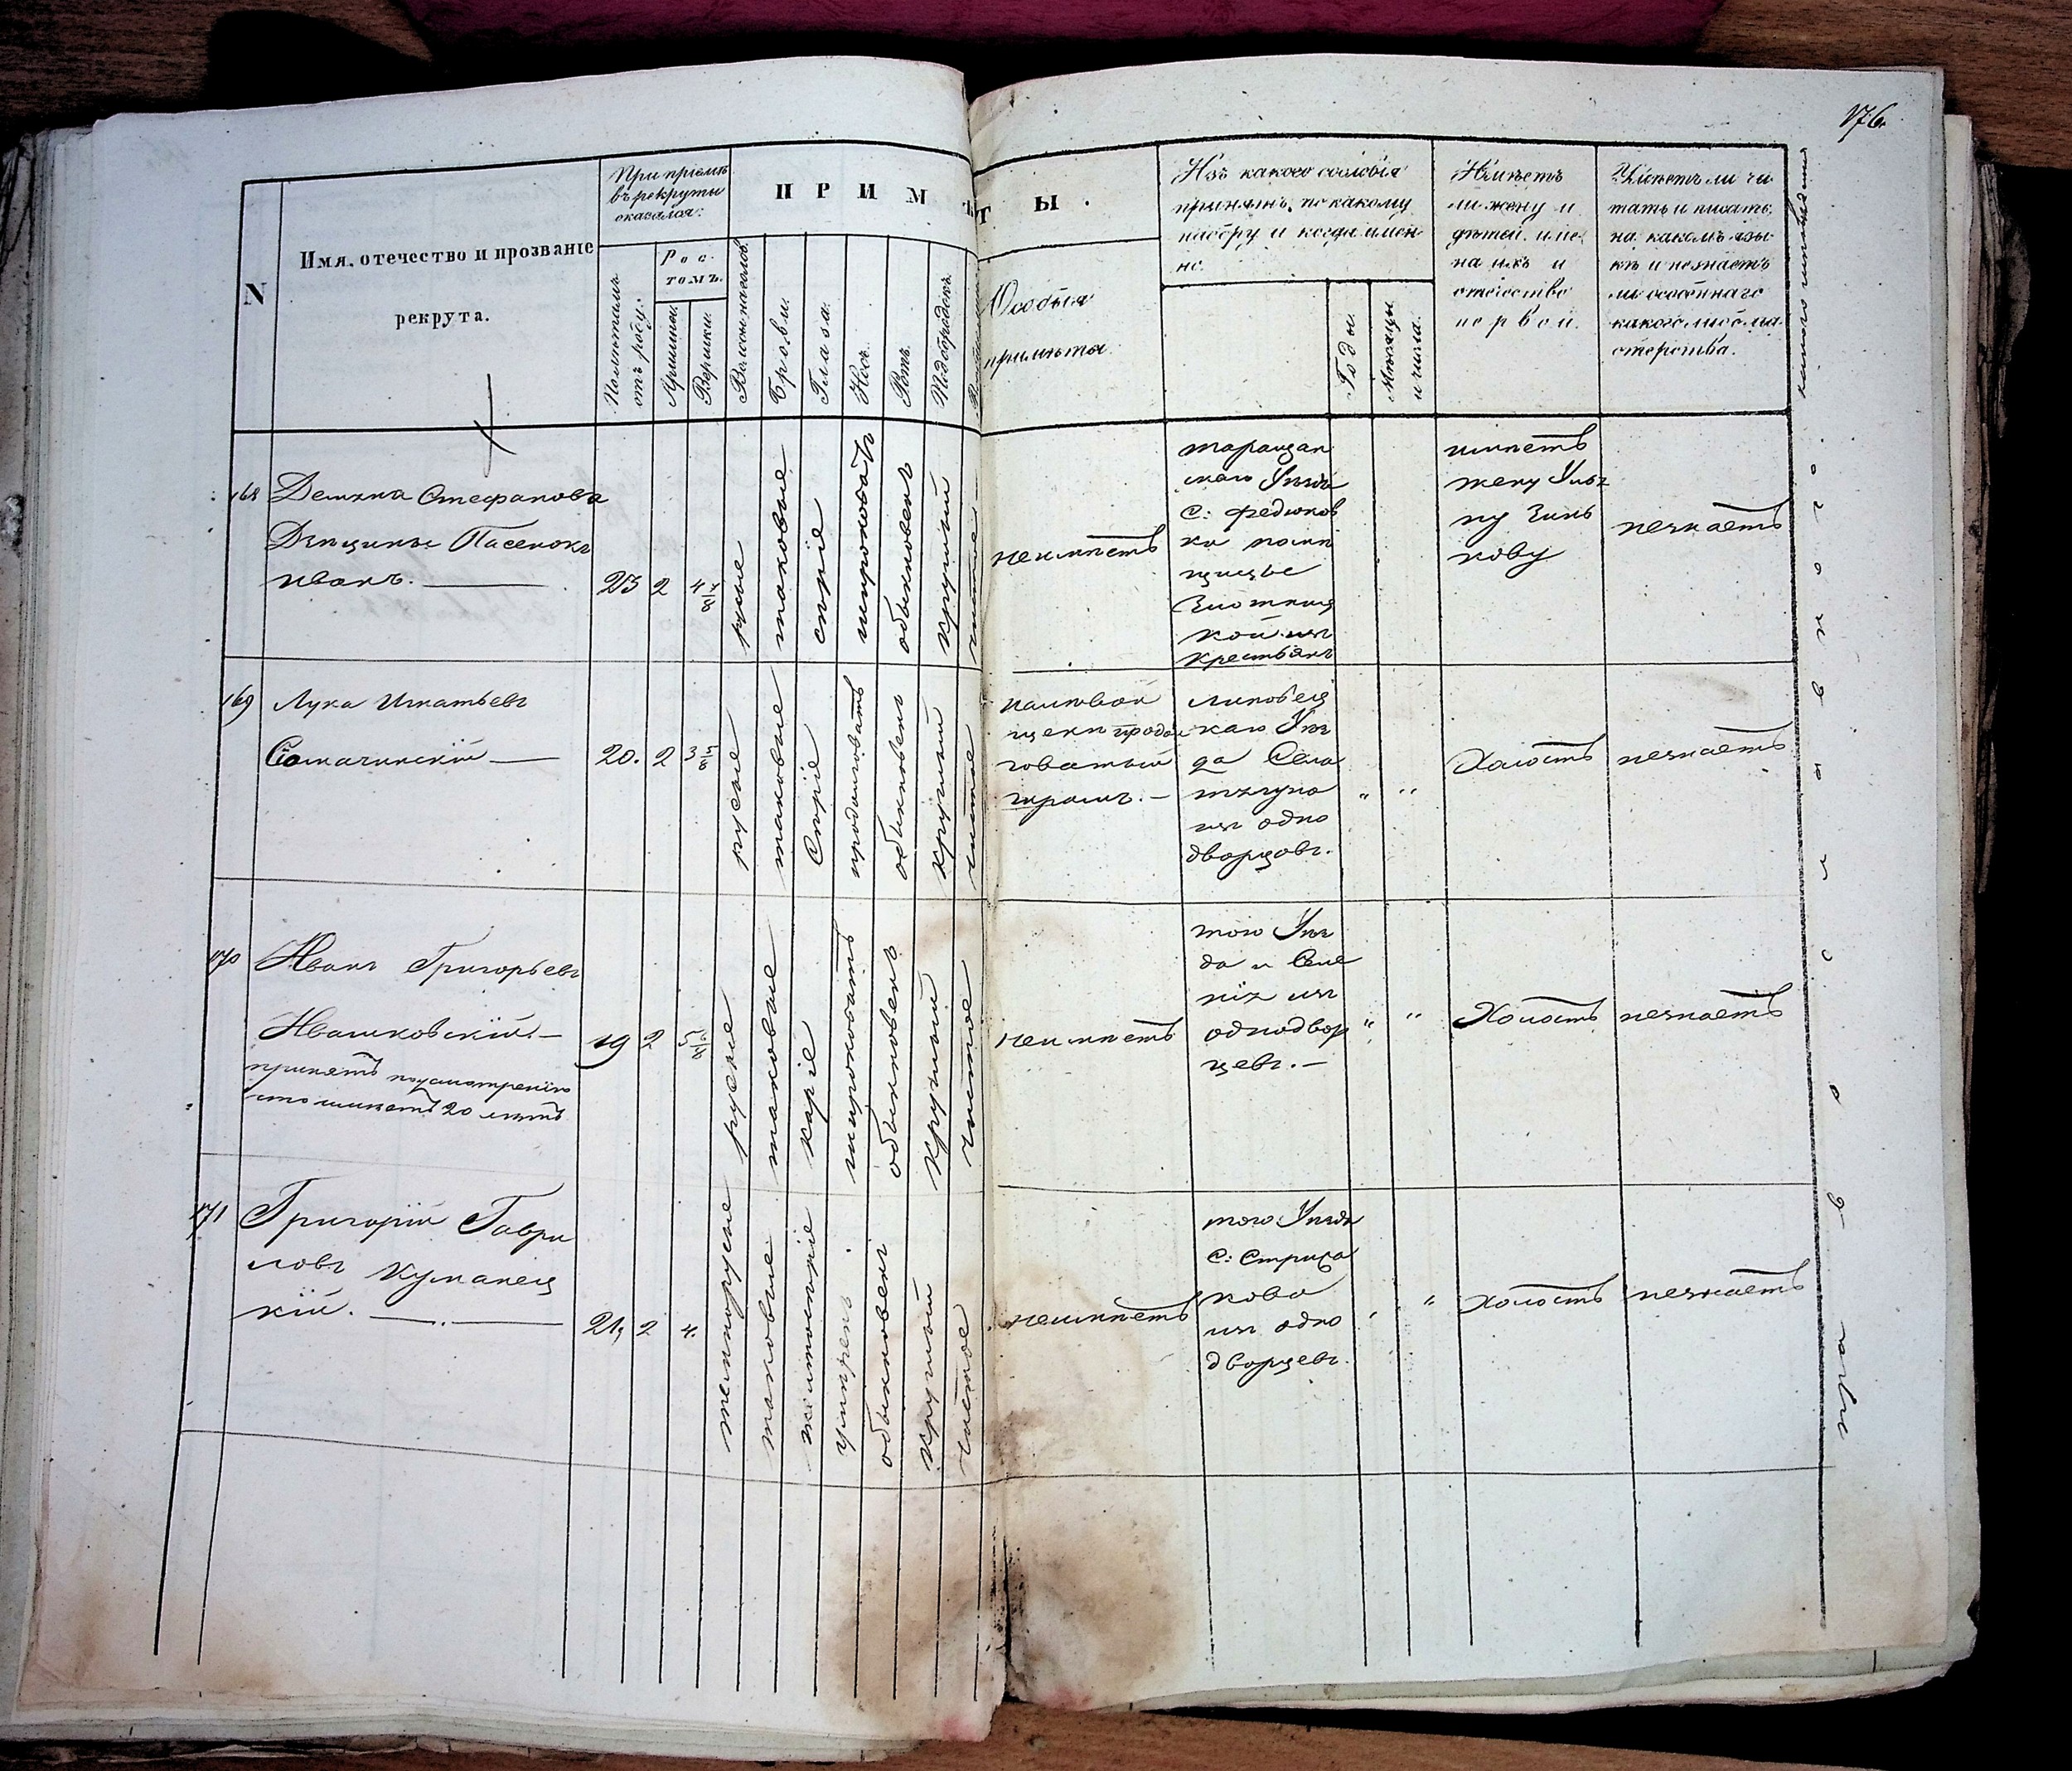 176.
N
Имя, отечество и прозваніе
рекрута.
При пріемѣ
въ рекруты
оказался:
По лѣтамъ
отъ роду.
Рос
томъ.
Аршины.
Вершки.
ПРИМѢТЫ.
Волосы на головѣ
Брови.
Глаза.
Носъ.
Ротъ.
Подбородокъ.
Особыя
примѣты.
Изъ какого сословія
принятъ, по какому
набору и когда имен
но.
Годы.
Мѣсяцы
и числа.
Имѣетъ
ли жену и
дѣтей, име
на ихъ и
отечество
первой.
Умѣетъ ли чи
тать и писать,
на какомъ язы
кѣ и не знаетъ
ли особеннаго
какого либо ма
стерства.
168
Демяна Стефанова
Дѣпцинъе Пасенокъ
иванъ.
23
2
4 4/8
русые
таковые
сѣріе
широковатъ
обыкновенъ
круглый
чистое
неимѣетъ
таращан
скаго Уѣзда
с: федюков
ки помѣ
щицъе
кой изъ
крестьянъ
имѣетъ
жену Ульл
ну Зинь
кову
незнаетъ
169
Лука Игнатьевъ
Сѣомачинскій
20.
2
3 5/8
русые
таковые
Сѣріе
продолговатъ
обыкновенъ
круглый
чистое
на лѣвой
щеки продол
говатый
шрамъ.
липовец
каго Уѣз
да Села
изъ одно
дворцовъ.
" "
Холостъ
незнаетъ
170
Иванъ Григорьевъ
Ивашковскій.
принятъ по усмотренію
что имѣетъ 20 лѣтъ
19
2
5 5/8
русые
таковые
каріе
широковатъ
обыкновенъ
круглый
чистое
неимѣетъ
того Уѣз
да и Селе
нія изъ
однодвор
цевъ.
" "
Холостъ
незнаетъ
171
Григорій Гаври
ловъ Куманец
кій.
21,
2
4.
темнорусые
таковые
желтосѣріе
Умѣренъ
обыкновенъ
круглый
чистое
неимѣетъ
того Уѣзда
с: Стриха
нова
изъ одно
дворцевъ.
" "
Холостъ
незнаетъ